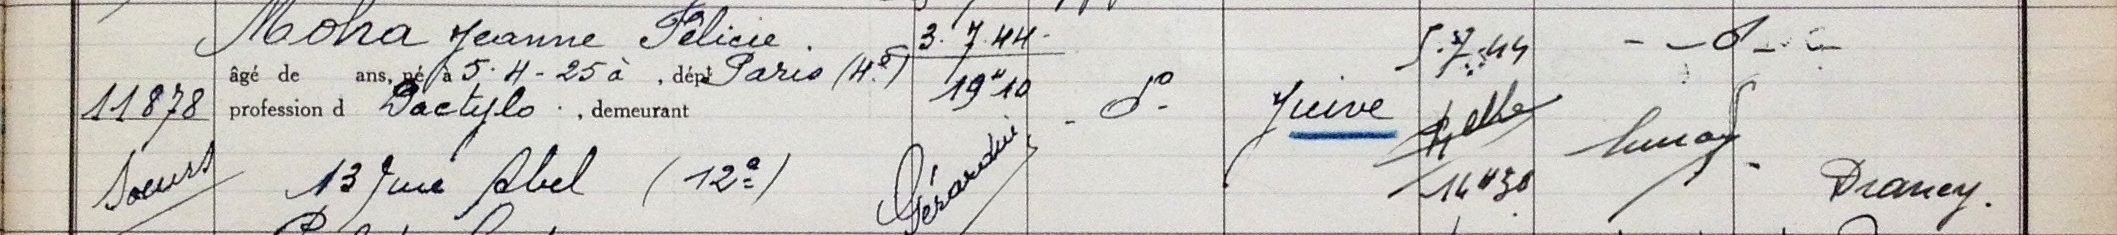 Moha Jeanne Félicie. 3.7.44. 5.7.44 - - do - -
âgé de ans, né à 5-4-25 à , dép^t Paris (4e) 19h10
11878 profession d Dactylo , demeurant - do - Juive
Soeurs 13 rue Abel (12e) Gérardin 14h30 Drancy.